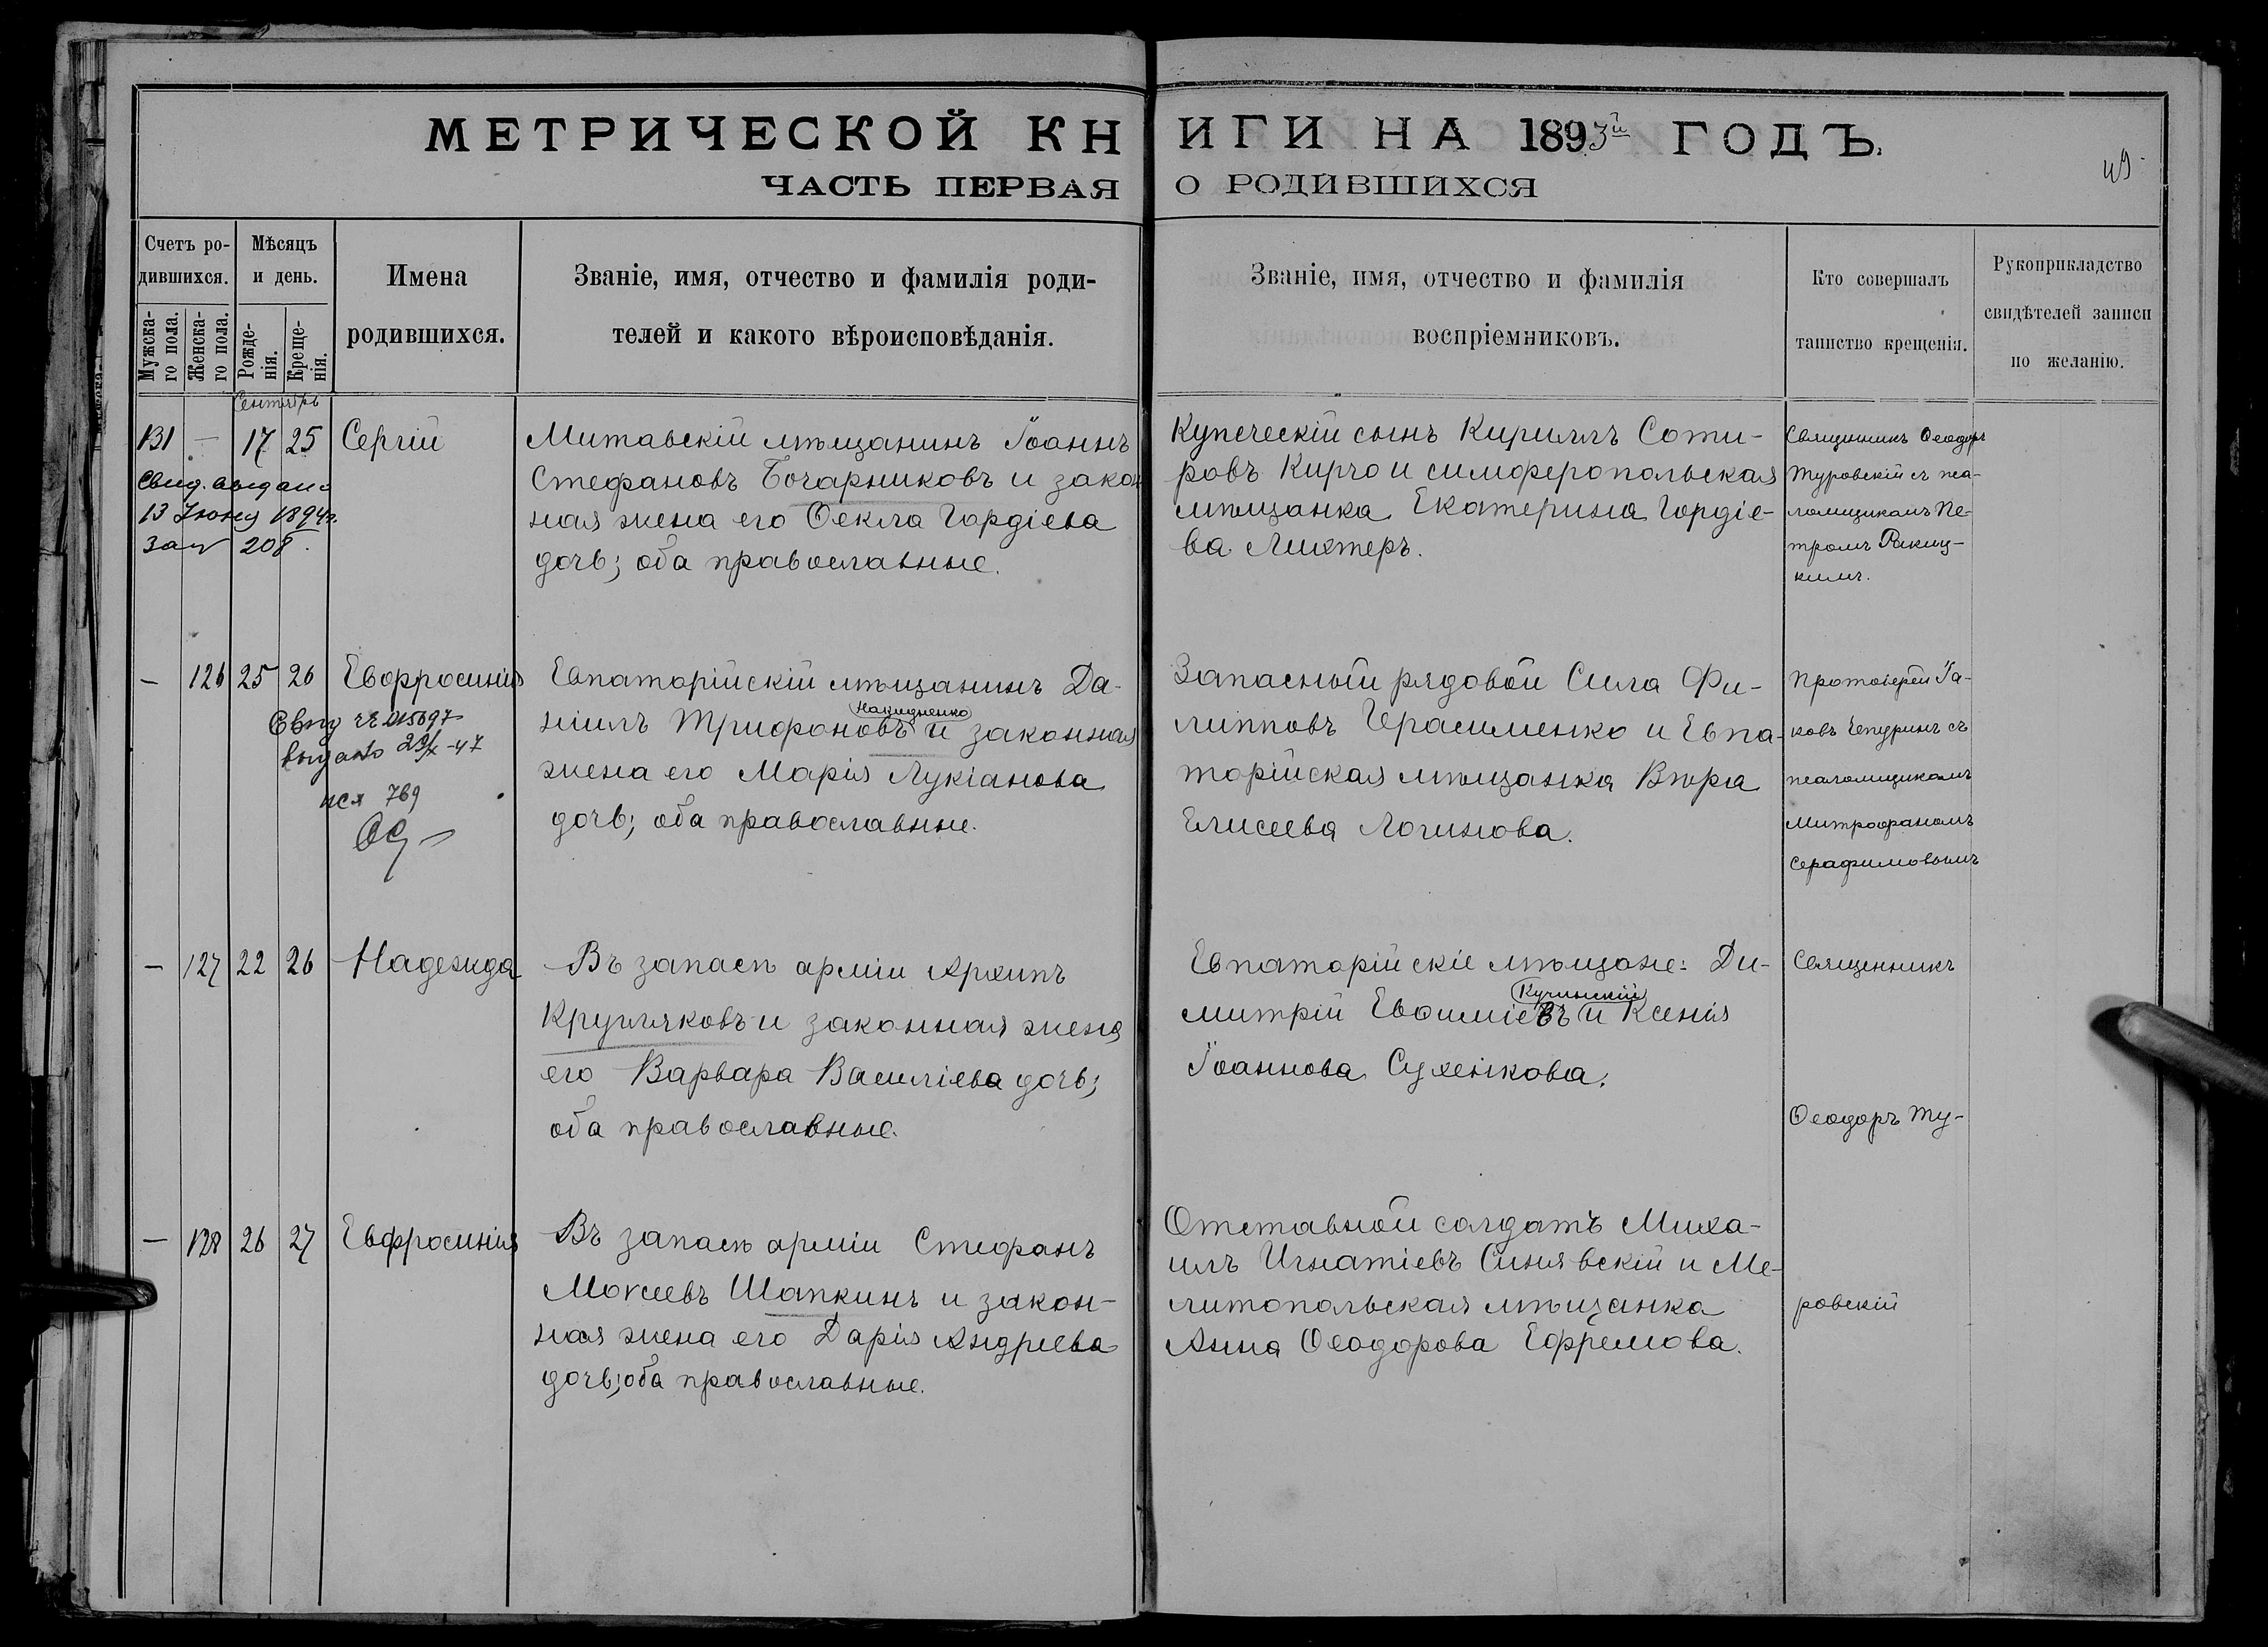 МЕТРИЧЕСКОЙ КНИГИ НА 1893й ГОДЪ.
ЧАСТЬ ПЕРВАЯ О РОДИВШИХСЯ
49
Счетъ ро-
дившихся.
Мужска-
го пола.
Женска-
го пола.
Мѣсяцъ
и день.
Рожде-
нія.
Креще-
нія.
Имена
родившихся.
Званіе, имя, отчество и фамилія роди-
телей и какого вѣроисповѣданія.
Званіе, имя, отчество и фамилія
воспріемниковъ.
Кто совершалъ
таинство крещенія.
Рукоприкладство
свидѣтелей записи
по желанію.
Сентябрь
131 — 17 25 Сергій
Свид. выдано
13 Іюня 1894г.
за № 208.
Митавскій мѣщанинъ Іоаннъ
Стефановъ Бочарниковъ и закон
ная жена его Ѳекла Гордіева
дочь; оба православные.
Купеческій сынъ Кириллъ Соти-
ровъ Кирчо и симферопольская
мѣщанка Екатерина Гордіе-
ва Лихтеръ.
Священникъ Ѳеодоръ
Туровскій съ пса-
ломщикомъ Пе-
тромъ Ракиц-
кимъ.
— 126 25 26 Евфросинія
выдано 29/X-47
769
Евпаторійскій мѣщанинъ Да-
ніилъ Трифоновъ Накидненко и законная
жена его Марія Лукіанова
дочь; оба православные.
Запасный рядовой Сила Фи-
липповъ Герасименко и Евпа-
торійская мѣщанка Вѣра
Елисеева Логинова.
Протоіерей Іа-
ковъ Чепуринъ съ
псаломщикомъ
Митрофаномъ
Серафимовымъ
— 127 22 26 Надежда
Въ запасѣ арміи Архипъ
Кругляковъ и законная жена
его Варвара Василіева дочь;
оба православные.
Евпаторійскіе мѣщане: Ди-
митрій Евѳиміевъ Кучинскій и Ксенія
Іоаннова Сухенкова.
Священникъ
Ѳеодоръ Ту-
— 128 26 27 Евфросинія
Въ запасѣ арміи Стефанъ
Моѵсеевъ Шапкинъ и закон-
ная жена его Дарія Андреева
дочь; оба православные.
Отставной солдатъ Миха-
илъ Игнатіевъ Синявскій и Ме-
литопольская мѣщанка
Анна Ѳеодорова Ефремова.
ровскій